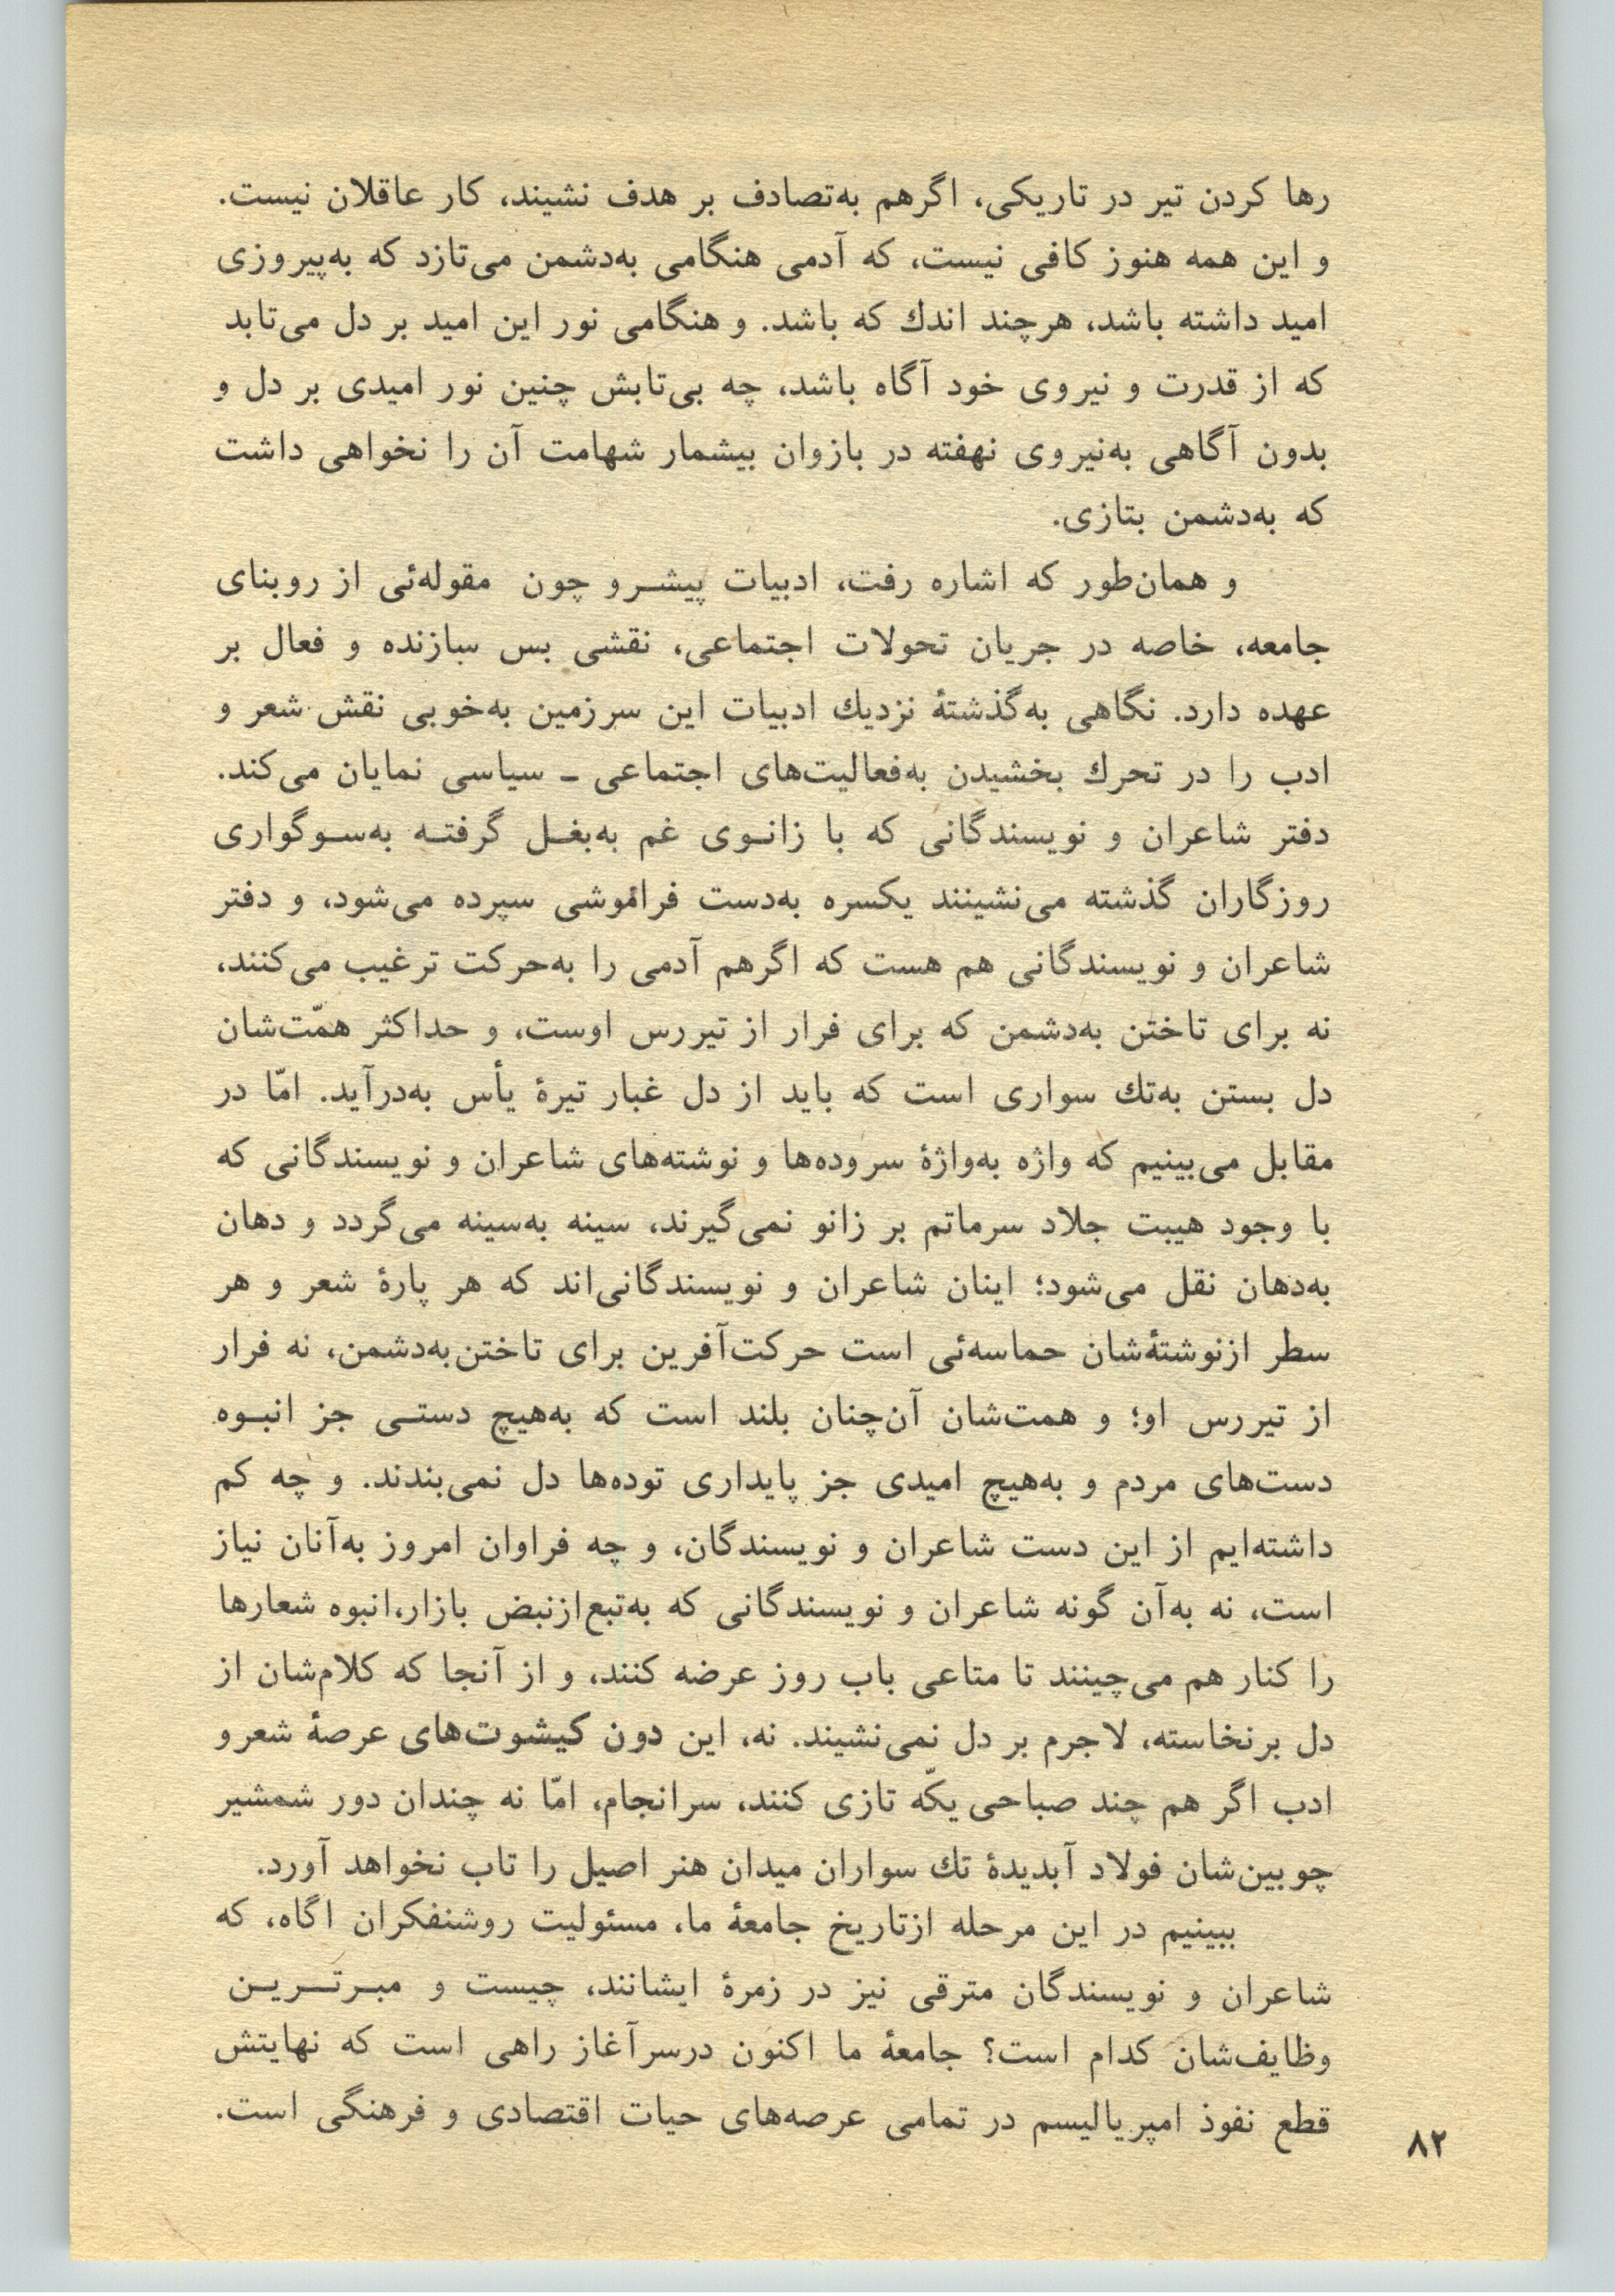 رها کردن تیر در تاریکی، اگرهم به‌تصادف بر هدف نشیند، کار عاقلان نیست.
و این همه هنوز کافی نیست، که آدمی هنگامی به‌دشمن می‌تازد که به‌پیروزی
امید داشته باشد، هرچند اندك که باشد. و هنگامی نور این امید بر دل می‌تابد
که از قدرت و نیروی خود آگاه باشد، چه بی‌تابش چنین نور امیدی بر دل و
بدون آگاهی به‌نیروی نهفته در بازوان بیشمار شهامت آن را نخواهی داشت
که به‌دشمن بتازی.
و همان‌طور که اشاره رفت، ادبیات پیشـرو چون مقوله‌ئی از روبنای
جامعه، خاصه در جریان تحولات اجتماعی، نقشی بس سازنده و فعال بر
عهده دارد. نگاهی به‌گذشتهٔ نزدیك ادبیات این سرزمین به‌خوبی نقش شعر و
ادب را در تحرك بخشیدن به‌فعالیت‌های اجتماعی ـ سیاسی نمایان می‌کند.
دفتر شاعران و نویسندگانی که با زانـوی غم به‌بغـل گرفتـه به‌سـوگواری
روزگاران گذشته می‌نشینند یکسره به‌دست فراموشی سپرده می‌شود، و دفتر
شاعران و نویسندگانی هم هست که اگرهم آدمی را به‌حرکت ترغیب می‌کنند،
نه برای تاختن به‌دشمن که برای فرار از تیررس اوست، و حداکثر همّت‌شان
دل بستن به‌تك سواری است که باید از دل غبار تیرهٔ یأس به‌درآید. امّا در
مقابل می‌بینیم که واژه به‌واژهٔ سروده‌ها و نوشته‌های شاعران و نویسندگانی که
با وجود هیبت جلاد سرماتم بر زانو نمی‌گیرند، سینه به‌سینه می‌گردد و دهان
به‌دهان نقل می‌شود؛ اینان شاعران و نویسندگانی‌اند که هر پارهٔ شعر و هر
سطر ازنوشتهٔ‌شان حماسه‌ئی است حرکت‌آفرین برای تاختن‌به‌دشمن، نه فرار
از تیررس او؛ و همت‌شان آن‌چنان بلند است که به‌هیچ دستـی جز انبـوه
دست‌های مردم و به‌هیچ امیدی جز پایداری توده‌ها دل نمی‌بندند. و چه کم
داشته‌ایم از این دست شاعران و نویسندگان، و چه فراوان امروز به‌آنان نیاز
است، نه به‌آن گونه شاعران و نویسندگانی که به‌تبع‌ازنبض بازار،انبوه شعارها
را کنار هم می‌چینند تا متاعی باب روز عرضه کنند، و از آنجا که کلام‌شان از
دل برنخاسته، لاجرم بر دل نمی‌نشیند. نه، این دون کیشوت‌های عرصهٔ شعرو
ادب اگر هم چند صباحی یکّه تازی کنند، سرانجام، امّا نه چندان دور شمشیر
چوبین‌شان فولاد آبدیدهٔ تك سواران میدان هنر اصیل را تاب نخواهد آورد.
ببینیم در این مرحله ازتاریخ جامعهٔ ما، مسئولیت روشنفکران اگاه، که
شاعران و نویسندگان مترقی نیز در زمرهٔ ایشانند، چیست و مبـرتـریـن
وظایف‌شان کدام است؟ جامعهٔ ما اکنون درسرآغاز راهی است که نهایتش
قطع نفوذ امپریالیسم در تمامی عرصه‌های حیات اقتصادی و فرهنگی است.
۸۲